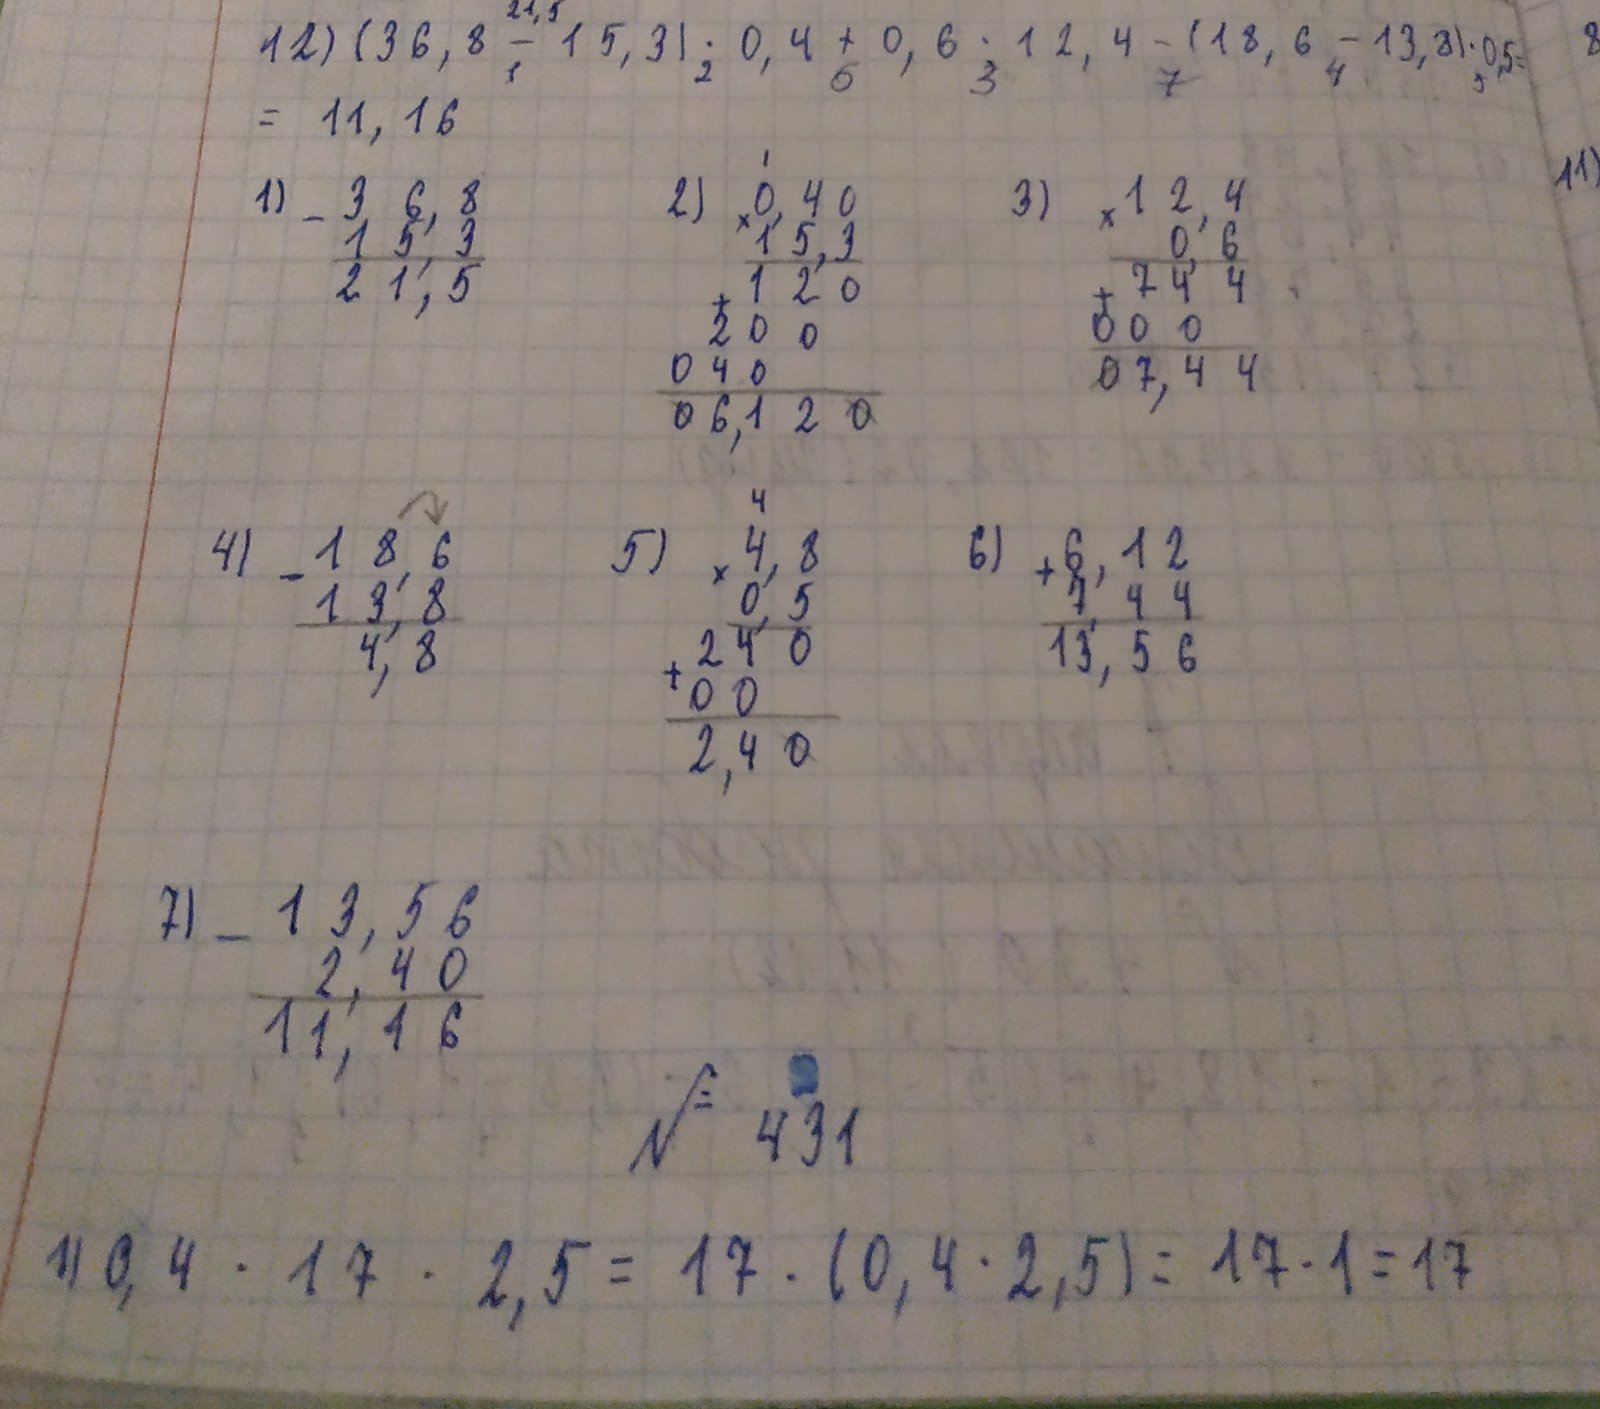 21,5
12) (36,8 - 15,3) · 0,4 + 0,6 · 12,4 - (18,6 - 13,8) · 0,5 =
1 2 6 3 7 4 5
= 11,16
11)
8
1) - 36,8
15,3
21,5
2) 1
× 0,40
15,3
+ 120
200
040
06,120
3) × 12,4
0,6
+ 744
000
07,44
4) - 18,6
13,8
4,8
5) 4
× 4,8
0,5
240
+ 00
2,40
6) + 6,12
7,44
13,56
7) - 13,56
2,40
11,16
№ 431
1) 0,4 · 17 · 2,5 = 17 · (0,4 · 2,5) = 17 · 1 = 17